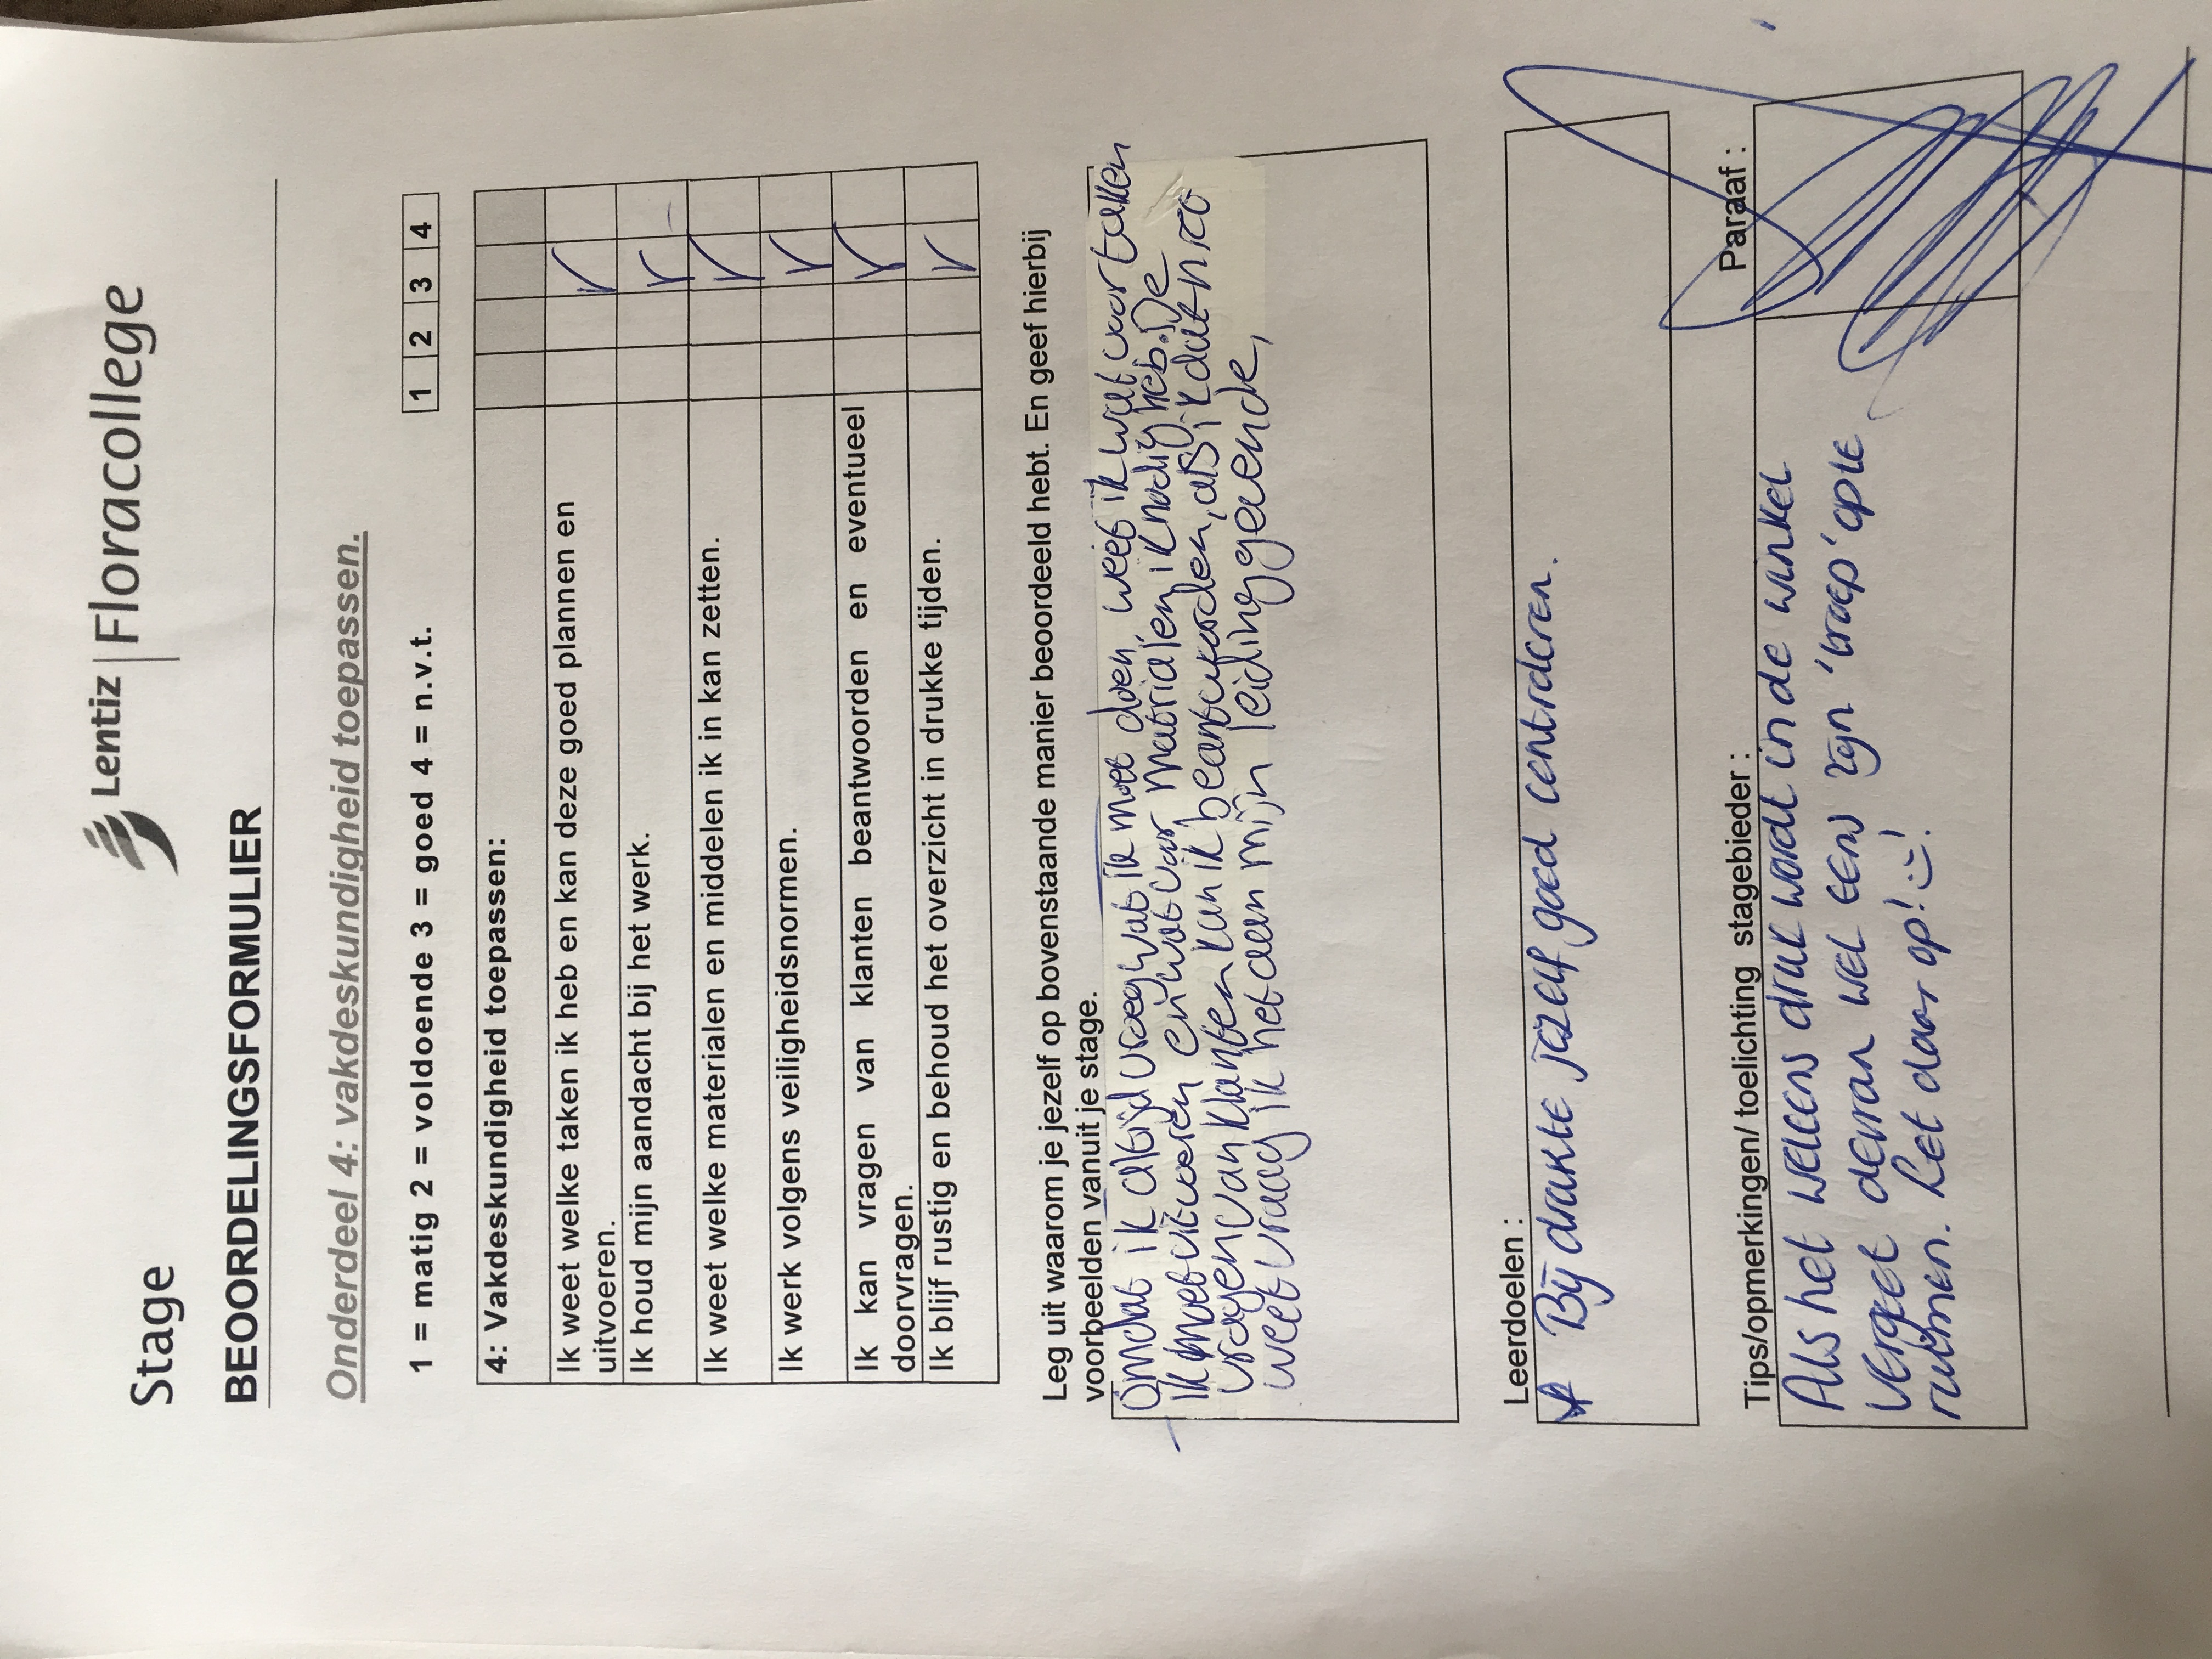 Lentiz | Floracollege
Stage
BEOORDELINGSFORMULIER
Onderdeel 4: vakdeskundigheid toepassen.
1 = matig 2 = voldoende 3 = goed 4 = n.v.t.
1 2 3 4
4: Vakdeskundigheid toepassen:
Ik weet welke taken ik heb en kan deze goed plannen en
uitvoeren.
Ik houd mijn aandacht bij het werk.
Ik weet welke materialen en middelen ik in kan zetten.
Ik werk volgens veiligheidsnormen.
Ik kan vragen van klanten beantwoorden en eventueel
doorvragen.
Ik blijf rustig en behoud het overzicht in drukke tijden.
Leg uit waarom je jezelf op bovenstaande manier beoordeeld hebt. En geef hierbij
voorbeelden vanuit je stage.
Omdat ik altijd vraag wat ik moet doen weet ik wat voor taken
ik moet uitvoeren en wat voor matrialen ik nodig heb. De
vragen van klanten kan ik beantwoorden, als ik dat niet
weet vraag ik het aan mijn leidinggevende,
Leerdoelen :
* Bij drukte jezelf goed centraleren.
Tips/opmerkingen/ toelichting stagebieder :
Paraaf :
Als het weleens druk wordt in de winkel
vergeet deman wel eens zijn 'troep' op te
ruimen. Let daar op! :-)!